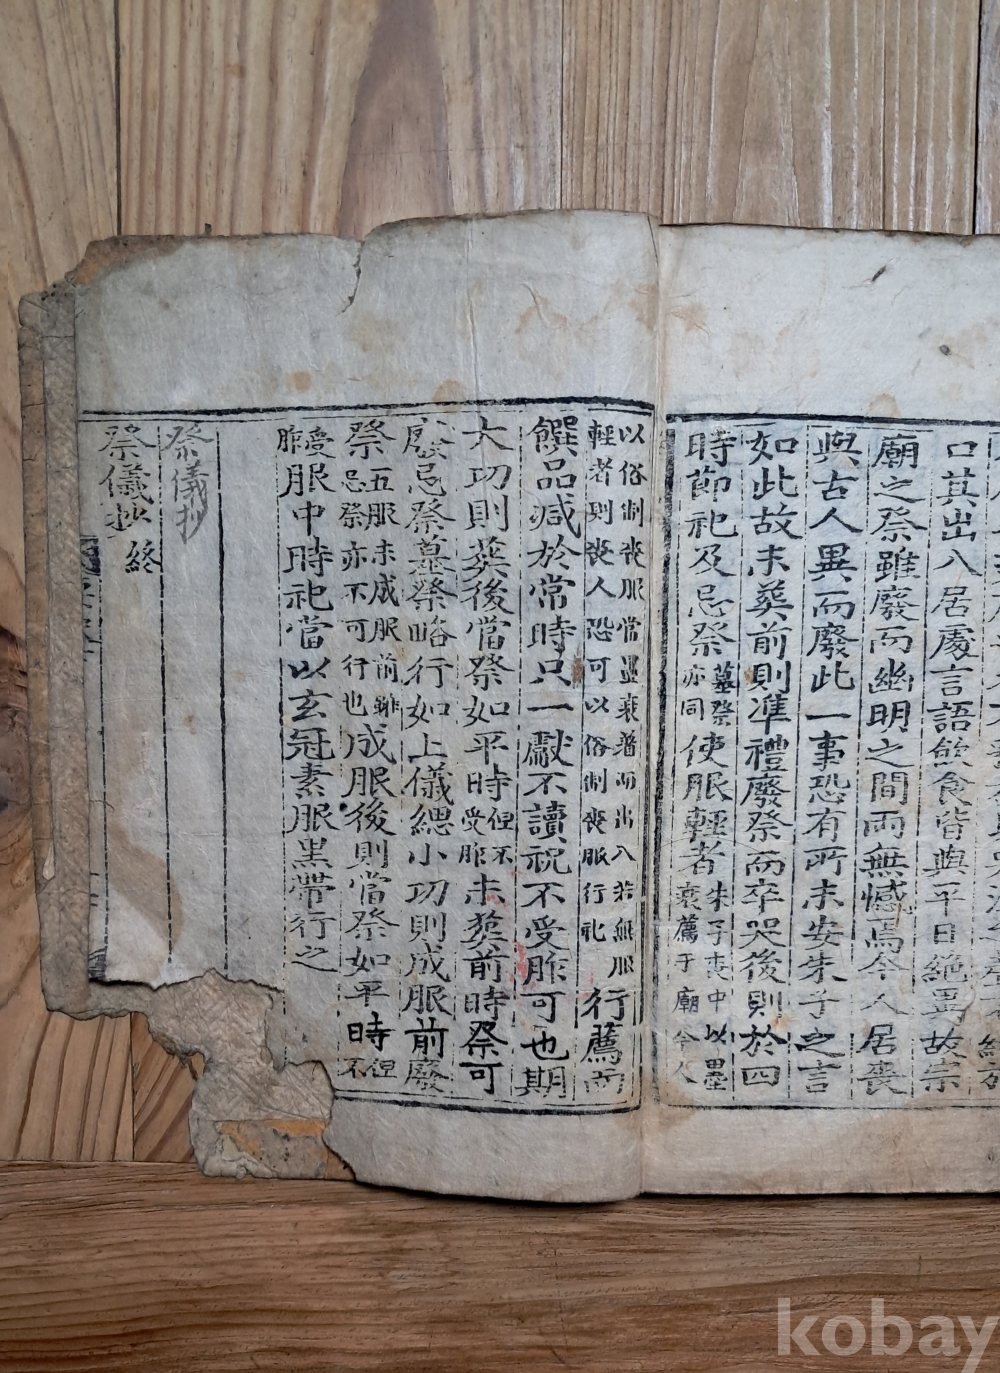 口其出入居處言語飲食皆與平日絶異故宗
廟之祭雖廢而幽明之間兩無憾焉今人居喪
與古人異而廢此一事恐有所未安朱子之言
如此故未葬前則準禮廢祭而卒哭後則於四
時節祀及忌祭墓祭亦同使服輕者朱子喪中以墨衰薦于廟今人
以俗制喪服當墨衰着而出入若無服輕者則喪人恐可以俗制喪服行祀行薦而
饌品減於常時只一獻不讀祝不受胙可也期
大功則葬後當祭如平時但不受胙未葬前時祭可
廢忌祭墓祭略行如上儀緦小功則成服前廢
祭五服未成服前雖忌祭亦不可行也成服後則當祭如平時但不
受胙服中時祀當以玄冠素服黑帶行之
祭儀抄
祭儀抄 終
kobay